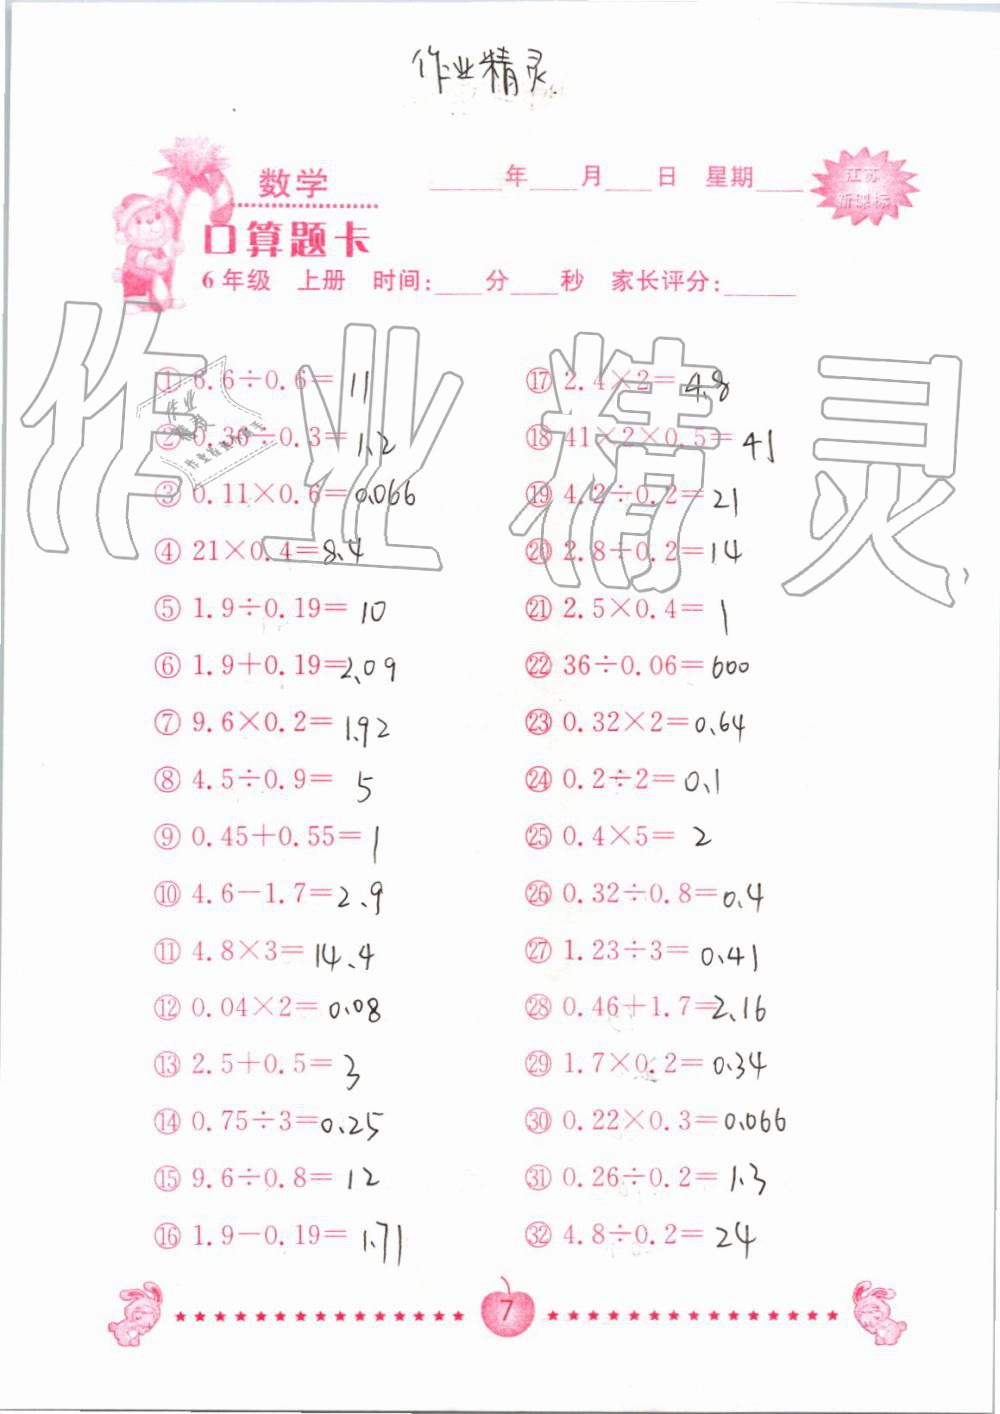 作业精灵
数学
____年____月____日 星期____
江苏
新课标
口算题卡
6年级 上册 时间:____分____秒 家长评分:______
作业精灵
① 6.6÷0.6= 11
② 0.36÷0.3= 1.2
③ 0.11×0.6=0.066
④ 21×0.4=8.4
⑤ 1.9÷0.19= 10
⑥ 1.9+0.19=2.09
⑦ 9.6×0.2= 1.92
⑧ 4.5÷0.9= 5
⑨ 0.45+0.55= 1
⑩ 4.6-1.7=2.9
⑪ 4.8×3= 14.4
⑫ 0.04×2= 0.08
⑬ 2.5+0.5= 3
⑭ 0.75÷3=0.25
⑮ 9.6÷0.8= 12
⑯ 1.9-0.19= 1.71
⑰ 2.4×2= 4.8
⑱ 41×2×0.5= 41
⑲ 4.2÷0.2= 21
⑳ 2.8÷0.2=14
㉑ 2.5×0.4= 1
㉒ 36÷0.06=600
㉓ 0.32×2=0.64
㉔ 0.2÷2=0.1
㉕ 0.4×5= 2
㉖ 0.32÷0.8=0.4
㉗ 1.23÷3= 0.41
㉘ 0.46+1.7=2.16
㉙ 1.7×0.2=0.34
㉚ 0.22×0.3=0.066
㉛ 0.26÷0.2= 1.3
㉜ 4.8÷0.2= 24
7